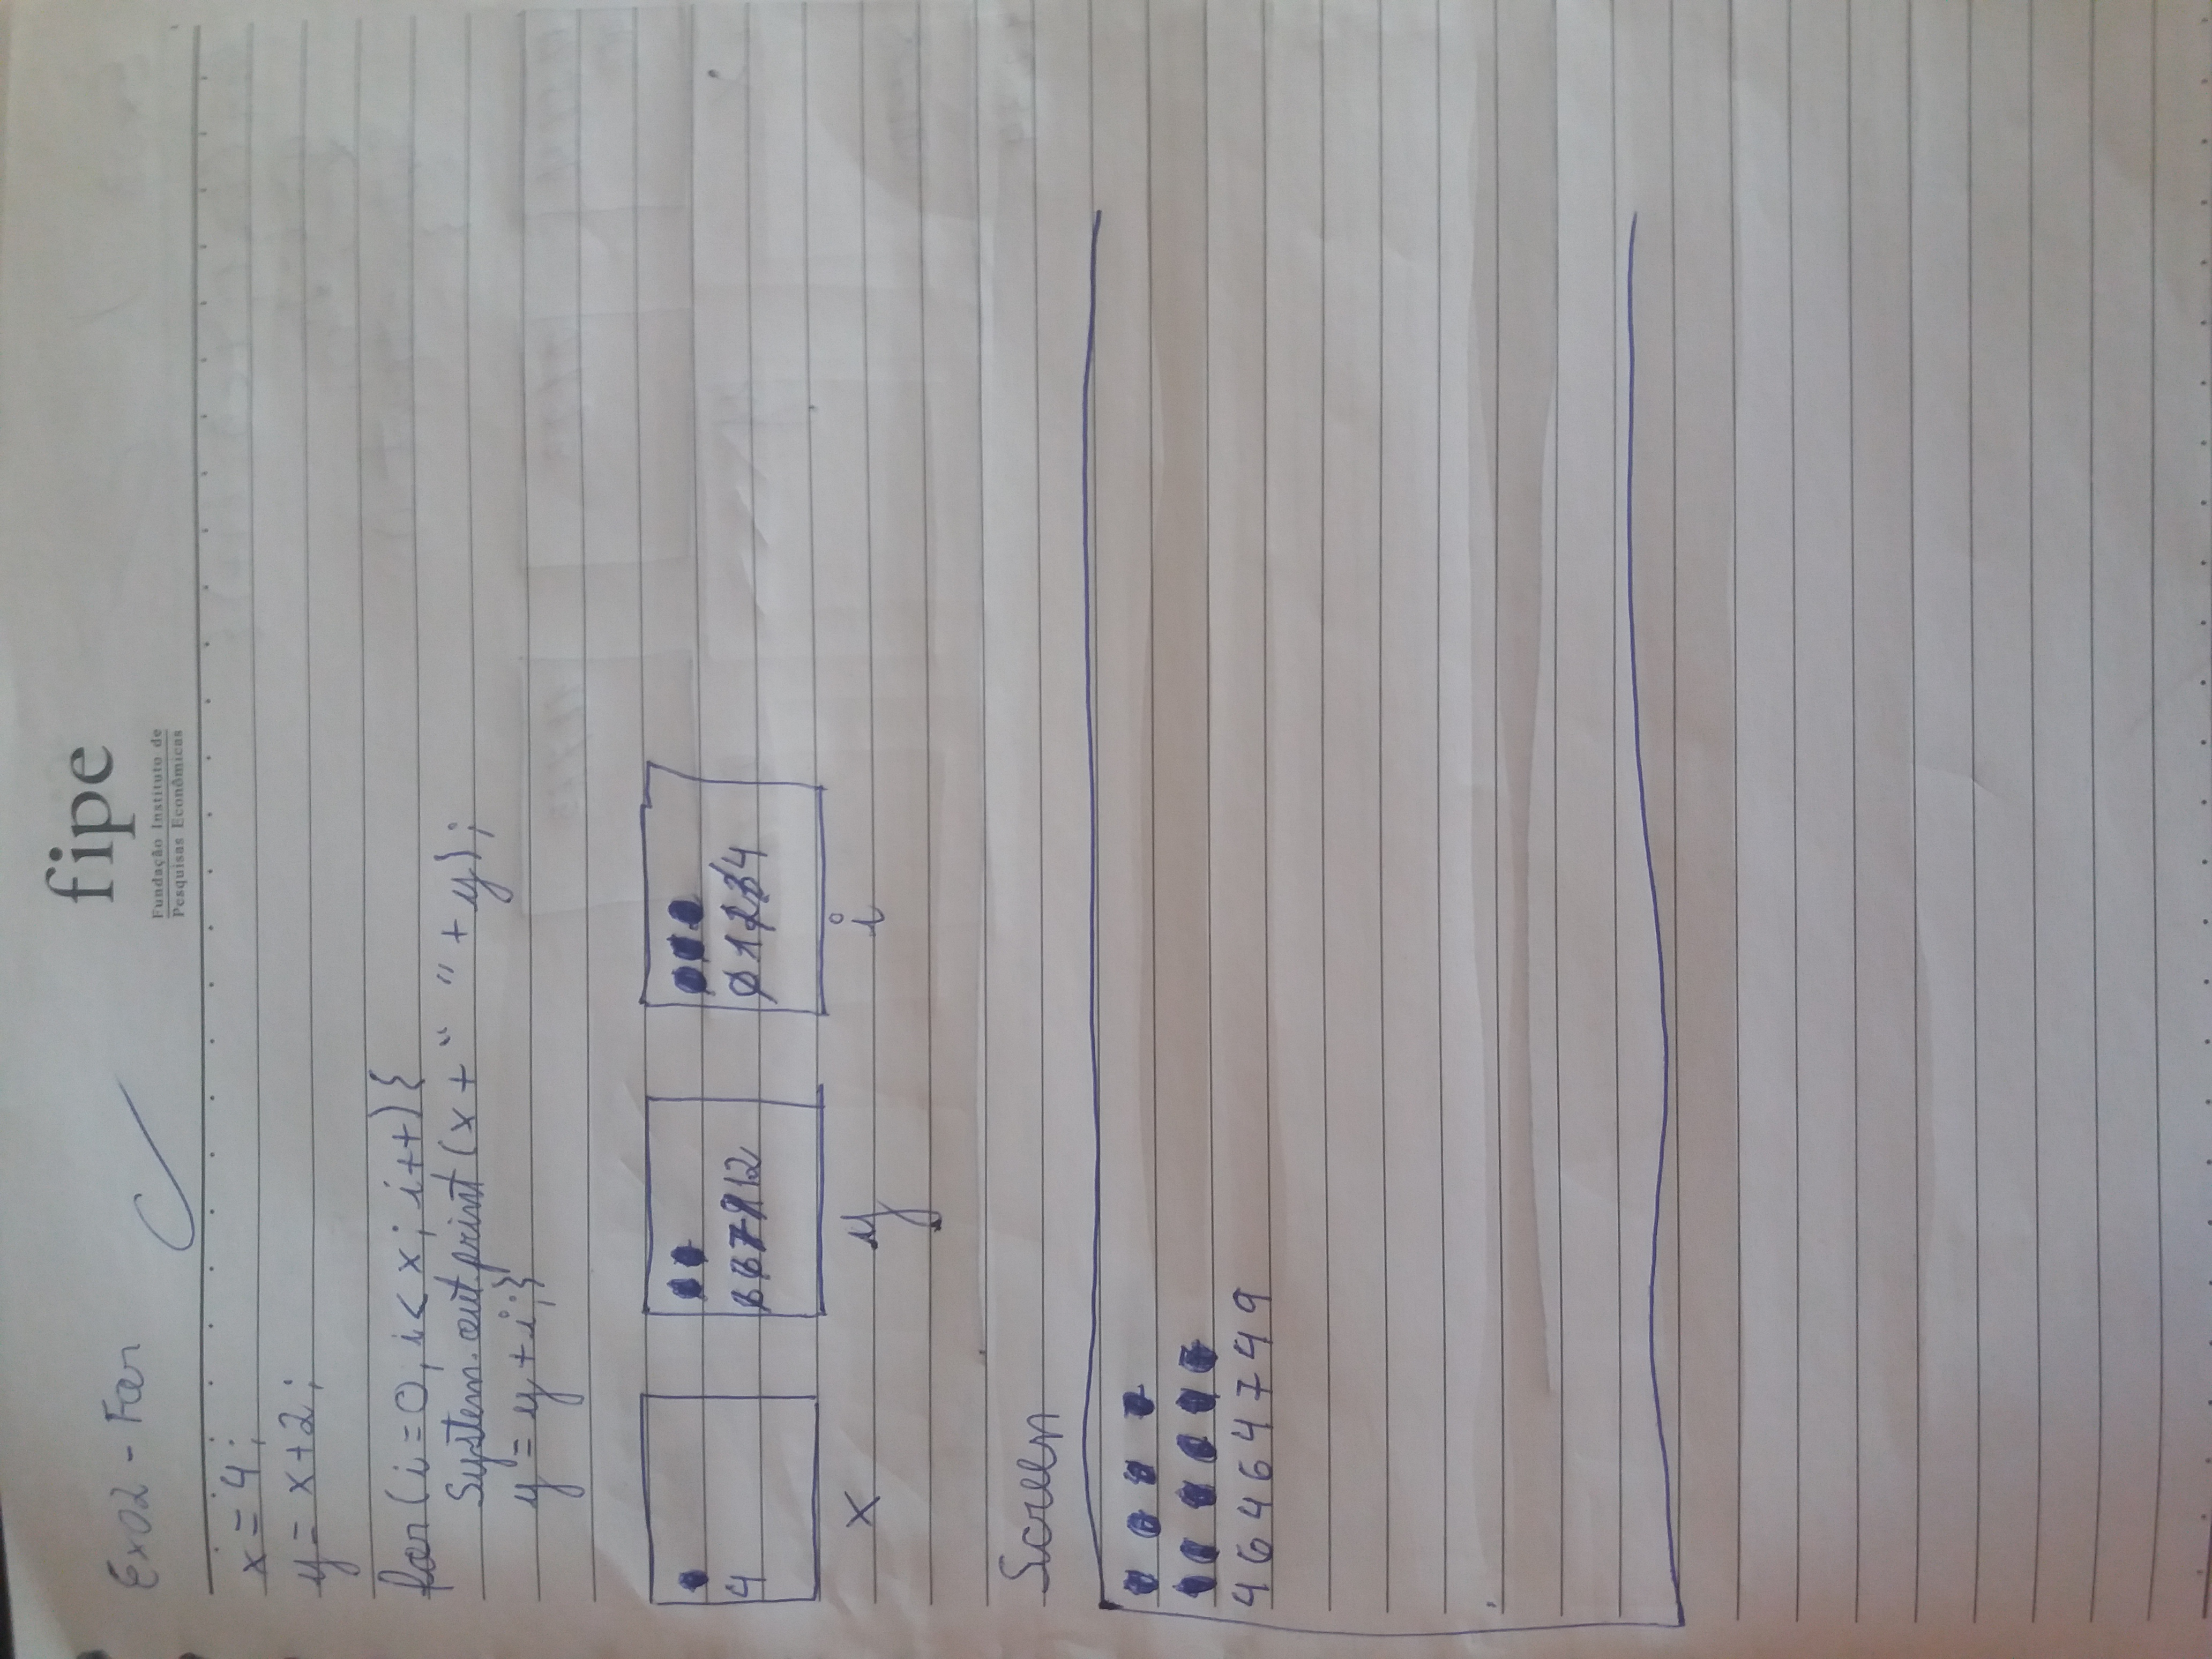 fipe
Fundação Instituto de
Pesquisas Econômicas
Ex02 - For
x = 4;
y = x+2;
for (i=0, i< x; i++) {
System.out.print (x + " " + y);
y = y + i;}
4
6 6 7 9 12
0 1 2 3 4
x
y
i
Screen
4 6 4 6 4 7 4 9